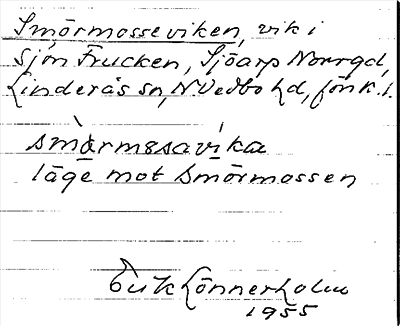 Smörmosseviken, vik i
sjön Frucken, Sjöarp Norrgd,
Linderås sn, N.Vedbo hd, Jönk.l.
smàrmɜsavìka
läge mot Smörmossen
Erik Lönnerholm
1955